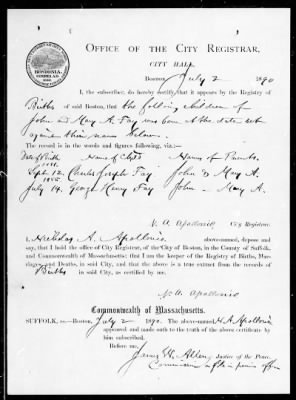 OFFICE OF THE CITY REGISTRAR,
CITY HALL,
Boston, July 2 1890
I, the subscriber, do hereby certify, that it appears by the Registry of
Births of said Boston, that the following children of
John and Mary A. Fay was born at the date set
against their names below.
The record is in the words and figures following, viz:—
Date of Birth Name of Child Names of Parents.
Sept. 12. Charles Joseph Fay John & Mary A.
1855.
July 14. George Henry Fay John — Mary A.
N. A. Apollonio City Registrar.
I, Nicholas A. Apollonio, above-named, depose and
say, that I hold the office of City Registrar, of the City of Boston, in the County of Suffolk,
and Commonwealth of Massachusetts; that I am the keeper of the Registry of Births, Mar-
riages, and Deaths, in said City, and that the above is a true extract from the records of
Births in said City, as certified by me.
N. A. Apollonio
Commonwealth of Massachusetts.
SUFFOLK, ss.—Boston, July 2 1890. The above-named N. A. Apollonio
appeared and made oath to the truth of the above certificate by
him subscribed.
Before me,
James W. Allen, Justice of the Peace.